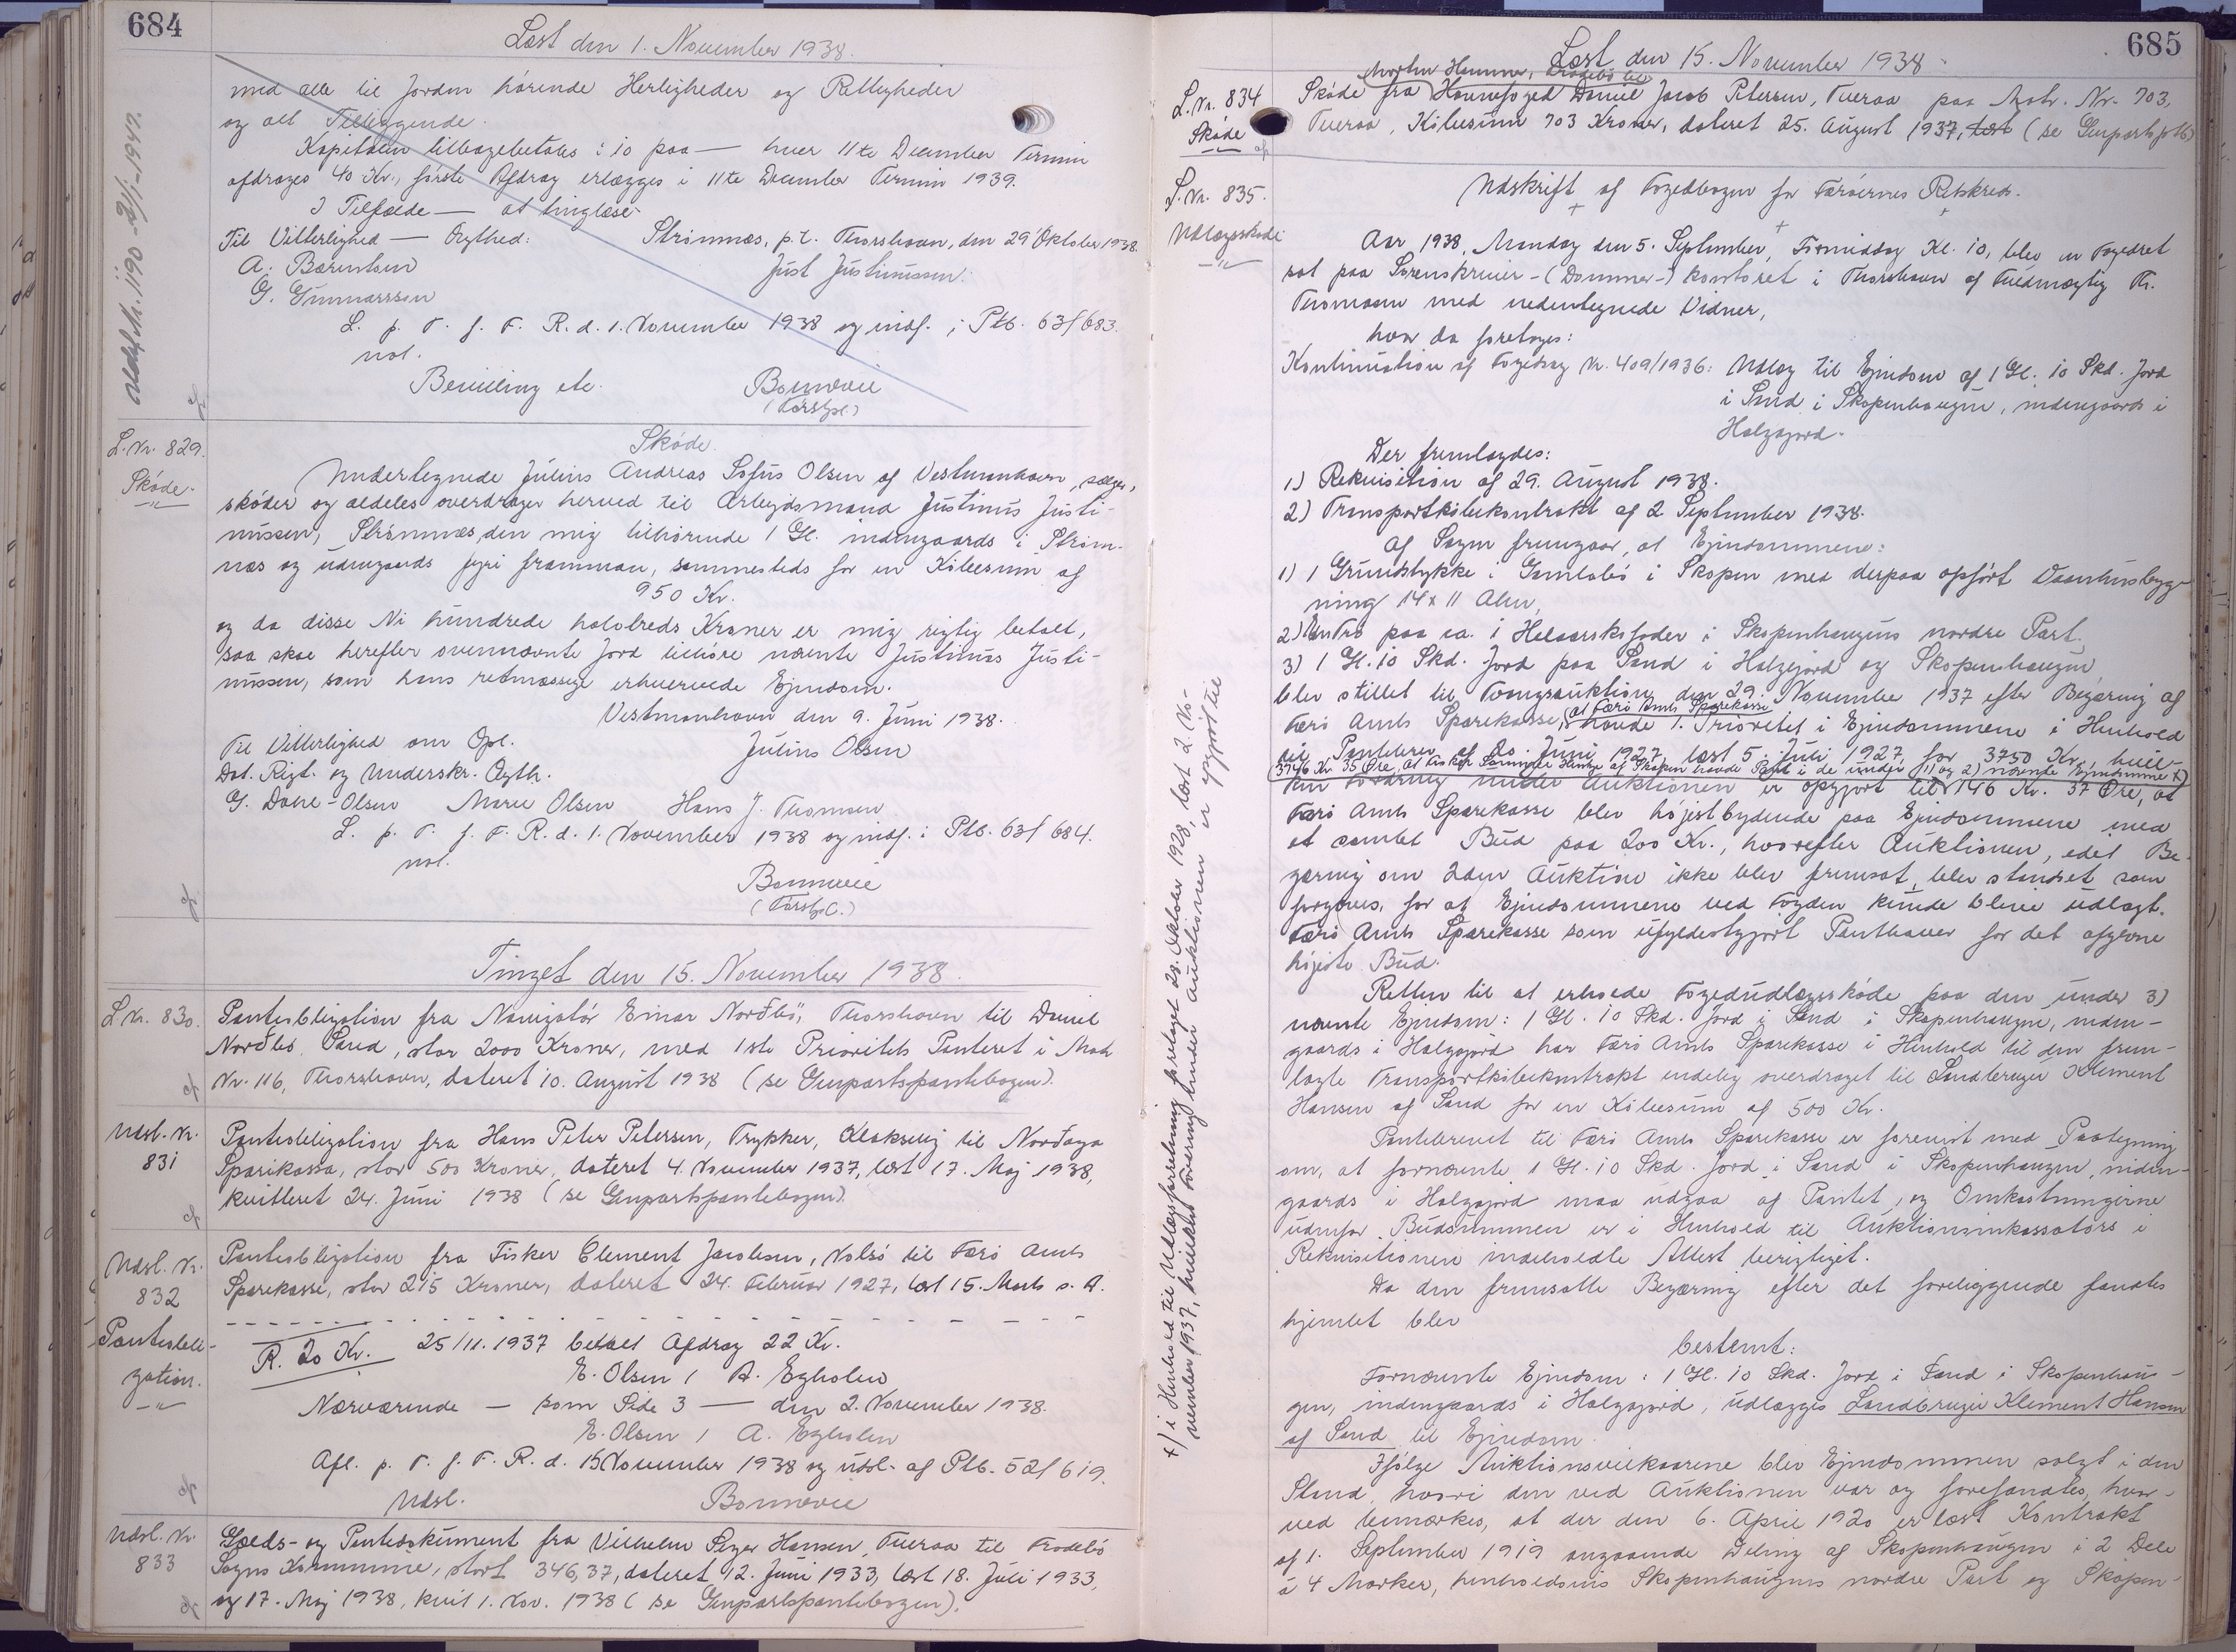 684
Læst den 1. November 1938.
med alle til Jorden hørende Herligheder og Rettigheder
og alt Tilliggende.
Kapitalen tilbagebetales : 10 paa — hver 11te December Termin
afdrages 40 Kr., første Afdrag erlægges i 11te December Termin 1939.
I Tilfælde — at tinglæse
Til Vitterlighed — Ægthed:
Strømnæs, p.t. Thorshavn, den 29 Oktober 1938.
A. Bærentsen
Just Justinussen.
G. Gunnarsson
L. p. T. f. F. R. d. 1. November 1938 og indf. i Ptb. 63f 683.
not.
Bevilling etc.
Bonnevie
(Forstpl.)
L. Nr. 829.
Skøde
Skøde.
Undertegnede Júlíus Andreas Sofus Olsen af Vestmanhavn, sælger,
skøder og aldeles overdrager herved til Arbejdsmand Justinus Justi-
nussen, Strømnæs, den mig tilhørende 1 Gl. indengaards i Strøm-
næs og udengaards fyri framman, sammesteds for en Købesum af
950 Kr.
og da disse Ni hundrede halvtreds Kroner er mig rigtig betalt,
saa skal herefter ovennævnte Jord tilhøre nævnte Justinus Justi-
nussen, som hans retmæssige erhvervede Ejendom.
Vestmanhavn den 9. Juni 1938.
Til Vitterlighed om Opl.
Júlíus Olsen
Dat. Rigt. og Underskr. Ægth.
G. Dahl-Olsen Marie Olsen Hans J. Thomsen
L. p. T. f. F. R. d. 1. November 1938 og indf. i Ptb. 63f 684.
not.
Bonnevie
Tinget den 15. November 1938.
L. Nr. 830.
Panteobligation fra Navigatør Einar Norðbø, Thorshavn til Daniel
Norðbø, Sand, stor 2000 Kroner, med 1ste Prioritets Panteret i Matr.
Nr. 116, Thorshavn, dateret 10. August 1938 (se Genpartspantebogen).
Udsl. Nr.
831
Panteobligation fra Hans Peter Petersen, Trykker, Klaksvig til Norðoya
Sparikassa, stor 500 Kroner, dateret 4. November 1937, læst 17. Maj 1938,
kvitteret 24. Juni 1938 (se Genpartspantebogen).
Udsl. Nr.
832
Panteobli-
gation.
Panteobligation fra Fisker Clement Jacobsen, Nolsø til Færø Amts
Sparekasse, stor 215 Kroner, dateret 24. Februar 1927, læst 15. Marts s. A.
R. 20 Kr. 25/11. 1937 betalt Afdrag 22 Kr.
E. Olsen / A. Egholm
Nærværende — som Side 3 — den 2. November 1938.
E. Olsen / A. Egholm
Afl. p. T. f. F. R. d. 15 November 1938 og udsl. af Ptb. 52f 619.
Udsl.
Bonnevie
Udsl. Nr.
833
Gælds- og Pantedokument fra Vilhelm Hansen, Tveraa til Frodebø
Sogns Kommune, stort 346,37, dateret 12. Juni 1933, læst 18. Juli 1933,
og 17. Maj 1938, kvit 1. Nov. 1938 (se Genpartspantebogen).
685
Læst den 15. November 1938
L. Nr. 834
Skøde
Morten Hammer, Frodebø til
Skøde fra Havnefoged Daniel Jacob Petersen, Tveraa paa Matr. Nr. 703,
Tveraa, Købesum 703 Kroner, dateret 25. August 1937, læst (se Genpartsptb)
L. Nr. 835.
Udlægsskøde
Udskrift af Fogedbogen for Færøernes Retskreds.
Aar 1938, Mandag den 5. September, Formiddag Kl. 10, blev en Fogedret
sat paa Sorenskriver-(Dommer-) kontoret i Thorshavn af Fuldmægtig Th.
Thomsen med nedentegnede Vidner,
hvor da foretoges:
Kontinuation af Fogedsag Nr. 409/1936: Udlæg til Ejendom af 1 Gl. 10 Skd. Jord
i Sand i Skopenhaugen, indengaards i
Halgagjord.
Der fremlagdes:
1) Rekvisition af 29. August 1938.
2) Transportkøbekontrakt af 2. September 1938.
Af Sagen fremgaar, at Ejendommene:
1) 1 Grundstykke i Gamlabø i Skopen med derpaa opført Vaanhusbyg-
ning 14 x 11 Alen,
2) paa ca. 1 Helaarskofoder i Skopenhaugens nordre Part,
3) 1 Gl. 10 Skd. Jord paa Sand i Halgagjord og Skopenhaugen,
blev stillet til Tvangsauktion den 29. November 1937 efter Begæring af
Færø Amts Sparekasse, at Færø Amts Sparekasse havde 1. Prioritet i Ejendommene i Henhold
til Pantebrev af 20. Juni 1927, læst 5. Juli 1927, for 3750 Kr., hvil-
3746 Kr. 35 Øre, at Fisker Hentze af Skopen havde Pant i de under 1) og 2) nævnte Ejendomme +)
ken Fordring under Auktionen er opgjort til 146 Kr. 37 Øre, at
Færø Amts Sparekasse blev højestbydende paa Ejendommene med
et samlet Bud paa 200 Kr., hvorefter Auktionen, idet Be-
gæring om 2den Auktion ikke blev fremsat, blev standset som
forgæves, for at Ejendommene ved Fogden kunde blive udlagt
Færø Amts Sparekasse som ufyldestgjort Panthaver for det afgivne
højeste Bud.
Retten til at erholde Fogedudlægsskøde paa den under 3)
nævnte Ejendom: 1 Gl. 10 Skd. Jord i Sand i Skopenhaugen, inden-
gaards i Halgagjord har Færø Amts Sparekasse i Henhold til den frem-
lagte Transportkøbekontrakt endelig overdraget til Landbruger Klement
Hansen af Sand for en Købesum af 500 Kr.
Pantebrevet til Færø Amts Sparekasse er forevist med Paategning
om, at fornævnte 1 Gl. 10 Skd. Jord i Sand i Skopenhaugen, inden-
gaards i Halgagjord maa udgaa af Pantet, og Omkostningerne
udenfor Budsummen er i Henhold til Auktionsinkassators i
Rekvisitionen indeholdte Attest berigtiget.
Da den fremsatte Begæring efter det foreliggende fandtes
hjemlet blev
bestemt:
Fornævnte Ejendom: 1 Gl. 10 Skd. Jord i Sand i Skopenhau-
gen, indengaards i Halgagjord, udlægges Landbruger Klement Hansen
af Sand til Ejendom.
Ifølge Auktionsvilkaarene blev Ejendommen solgt i den
Stand, hvori den ved Auktionen var og forefandtes, hvor-
ved bemærkes, at der den 6. April 1920 er læst Kontrakt
af 1. September 1919 angaaende Deling af Skopenhaugen i 2 Dele
à 4 Marker, henholdsvis Skopenhaugens nordre Part og Skopen-
+) i Henhold til Udlægsforretning foretaget 23. Oktober 1928, læst 2. No-
vember 1937, hvilken Fordring under Auktionen er opgjort til